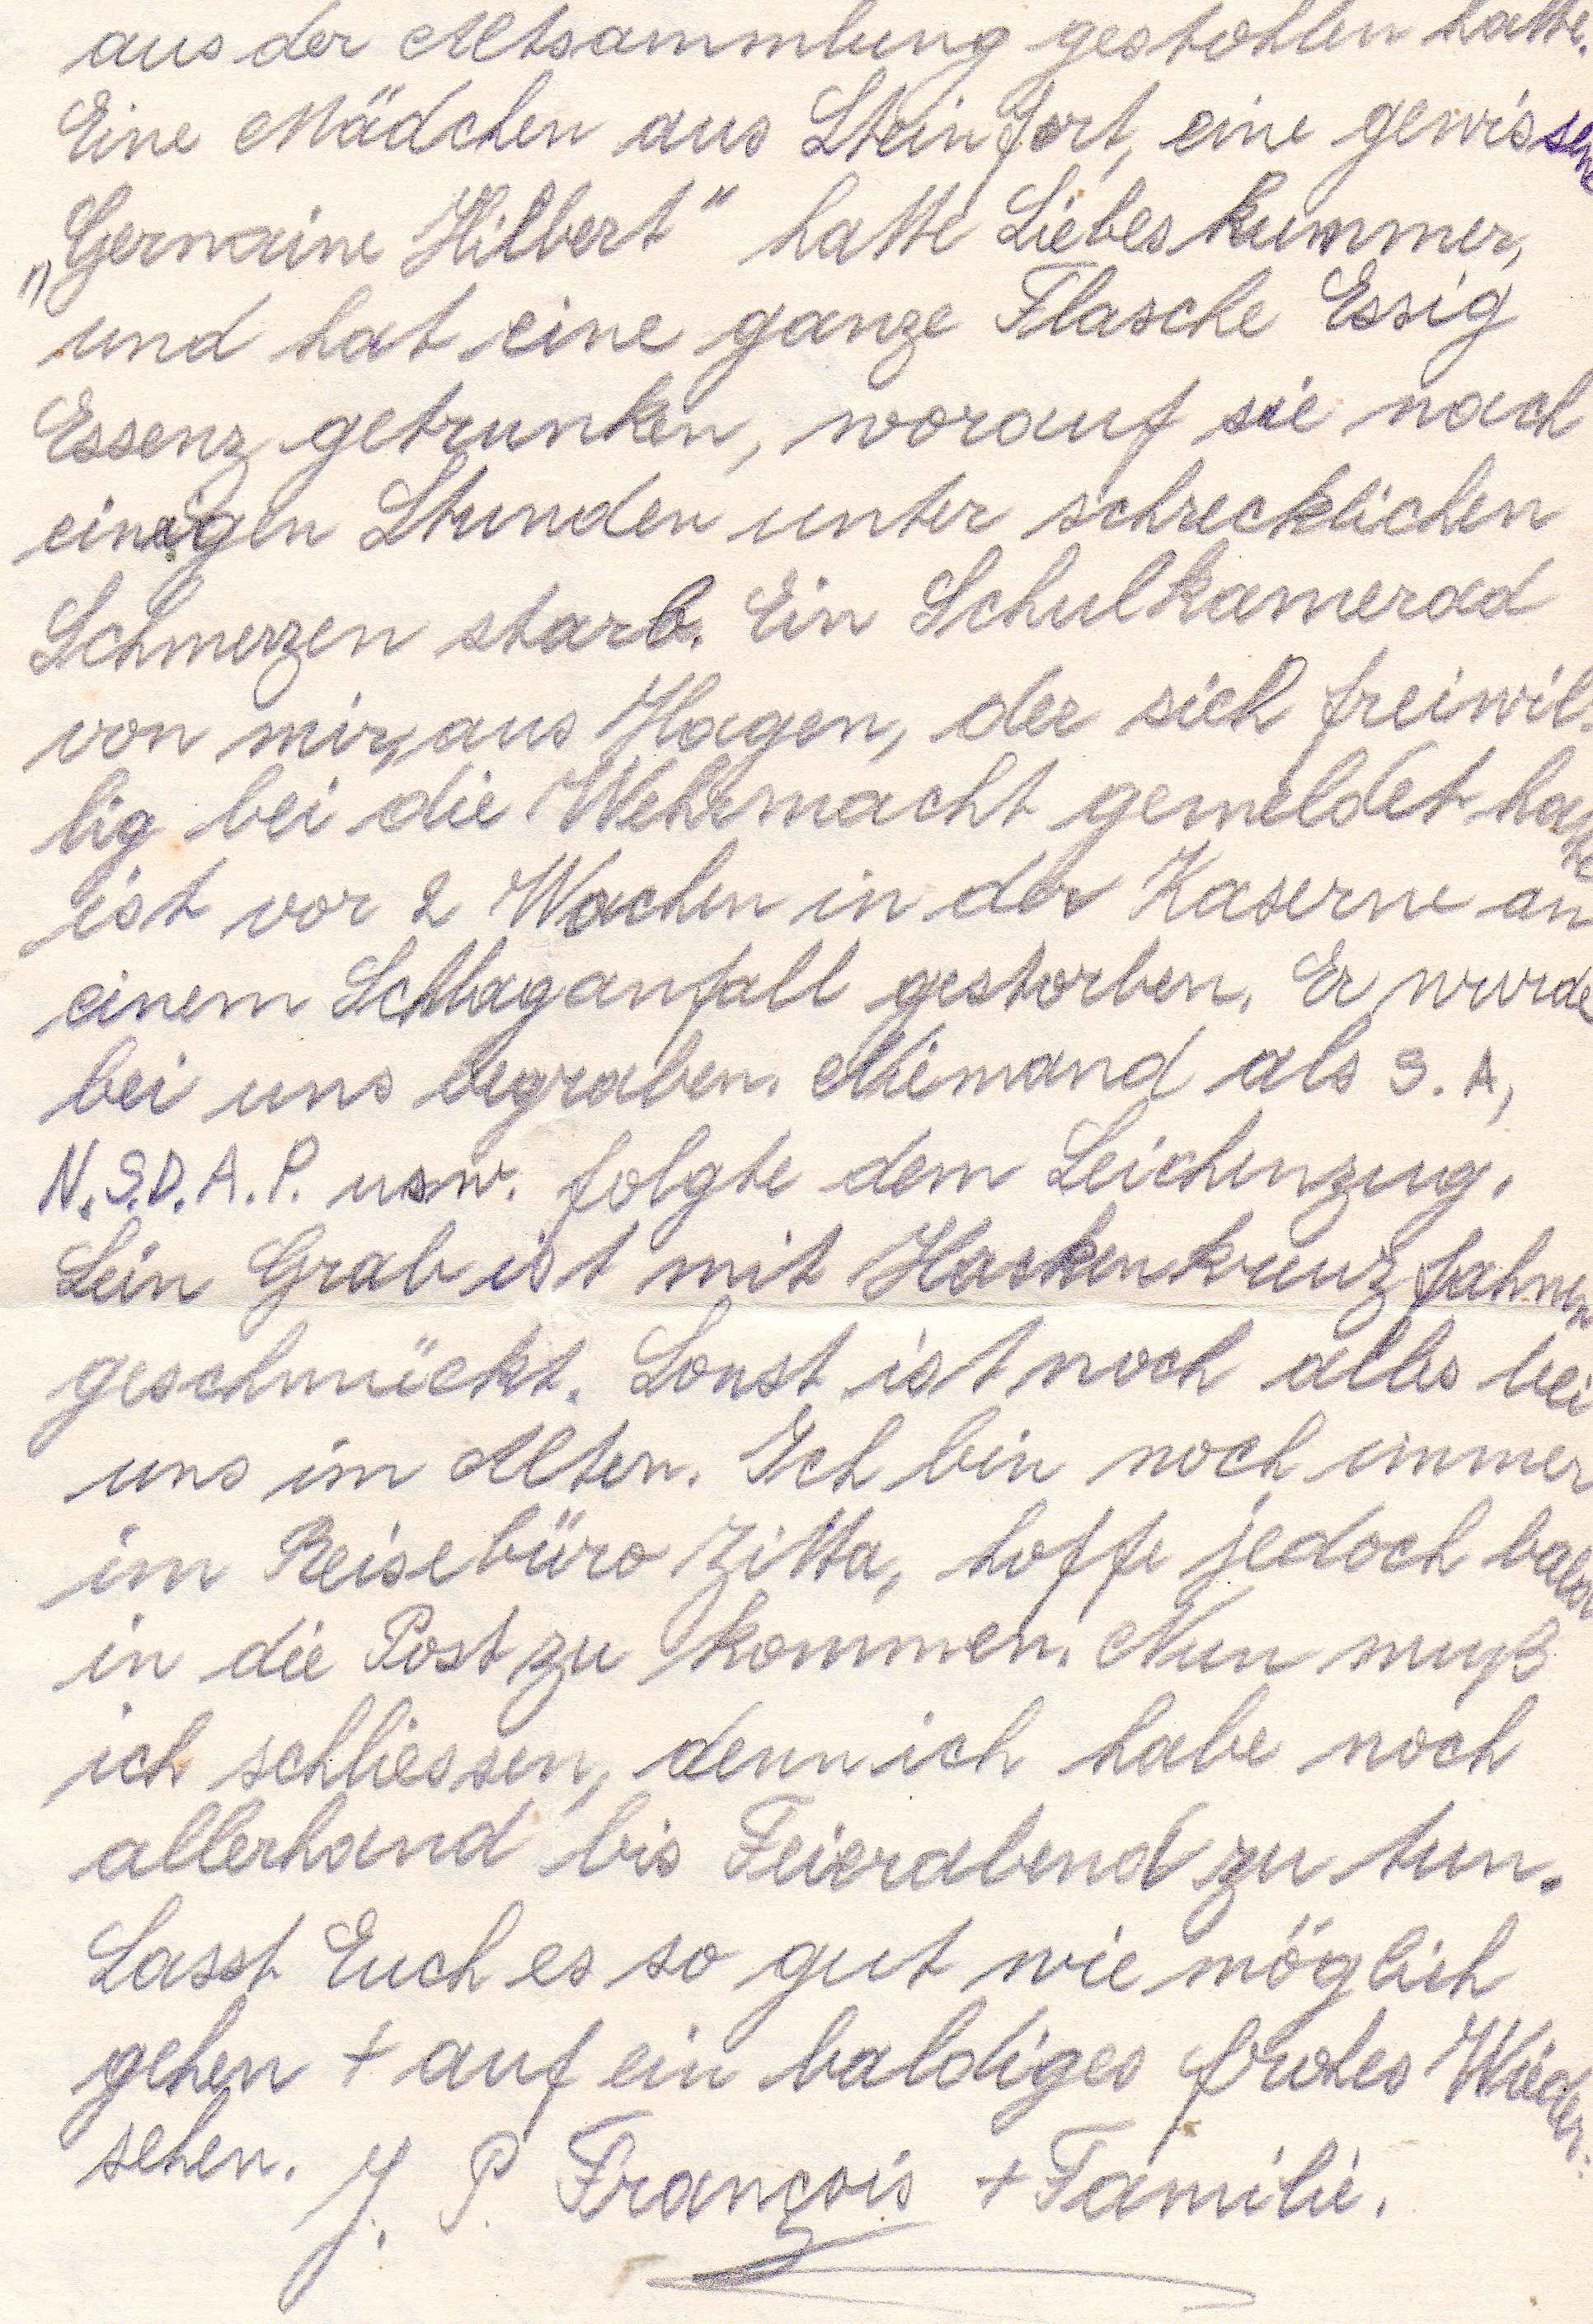 aus der Altsammlung gestohlen hatte.
Eine Mädchen aus Steinfort, eine gewissene
„Germaine Hilbert" hatte Liebeskummer,
und hat eine ganze Flasche Essig
Essenz getrunken, worauf sie nach
einigen Stunden unter schrecklichen
Schmerzen starb. Ein Schulkamerad
von mir, aus Hagen, der sich freiwil-
lig bei die Wehrmacht gemeldet hatte
ist vor 2 Wochen in der Kaserne an
einem Schlaganfall gestorben. Er wurde
bei uns begraben. Niemand als S. A,
N.S.D.A.P. usw. folgte dem Leichenzug.
Sein Grab ist mit Hackenkreuzfahnen
geschmückt. Sonst ist noch alles bei
uns im Alten. Ich bin noch immer
im Reisebüro Zitta, hoffe jedoch bald
in die Post zu kommen. Nun muß
ich schliessen, denn ich habe noch
allerhand bis Feierabend zu tun.
Lasst Euch es so gut wie möglich
gehen + auf ein baldiges frohes Wieder-
sehen. J. P. François + Familie.